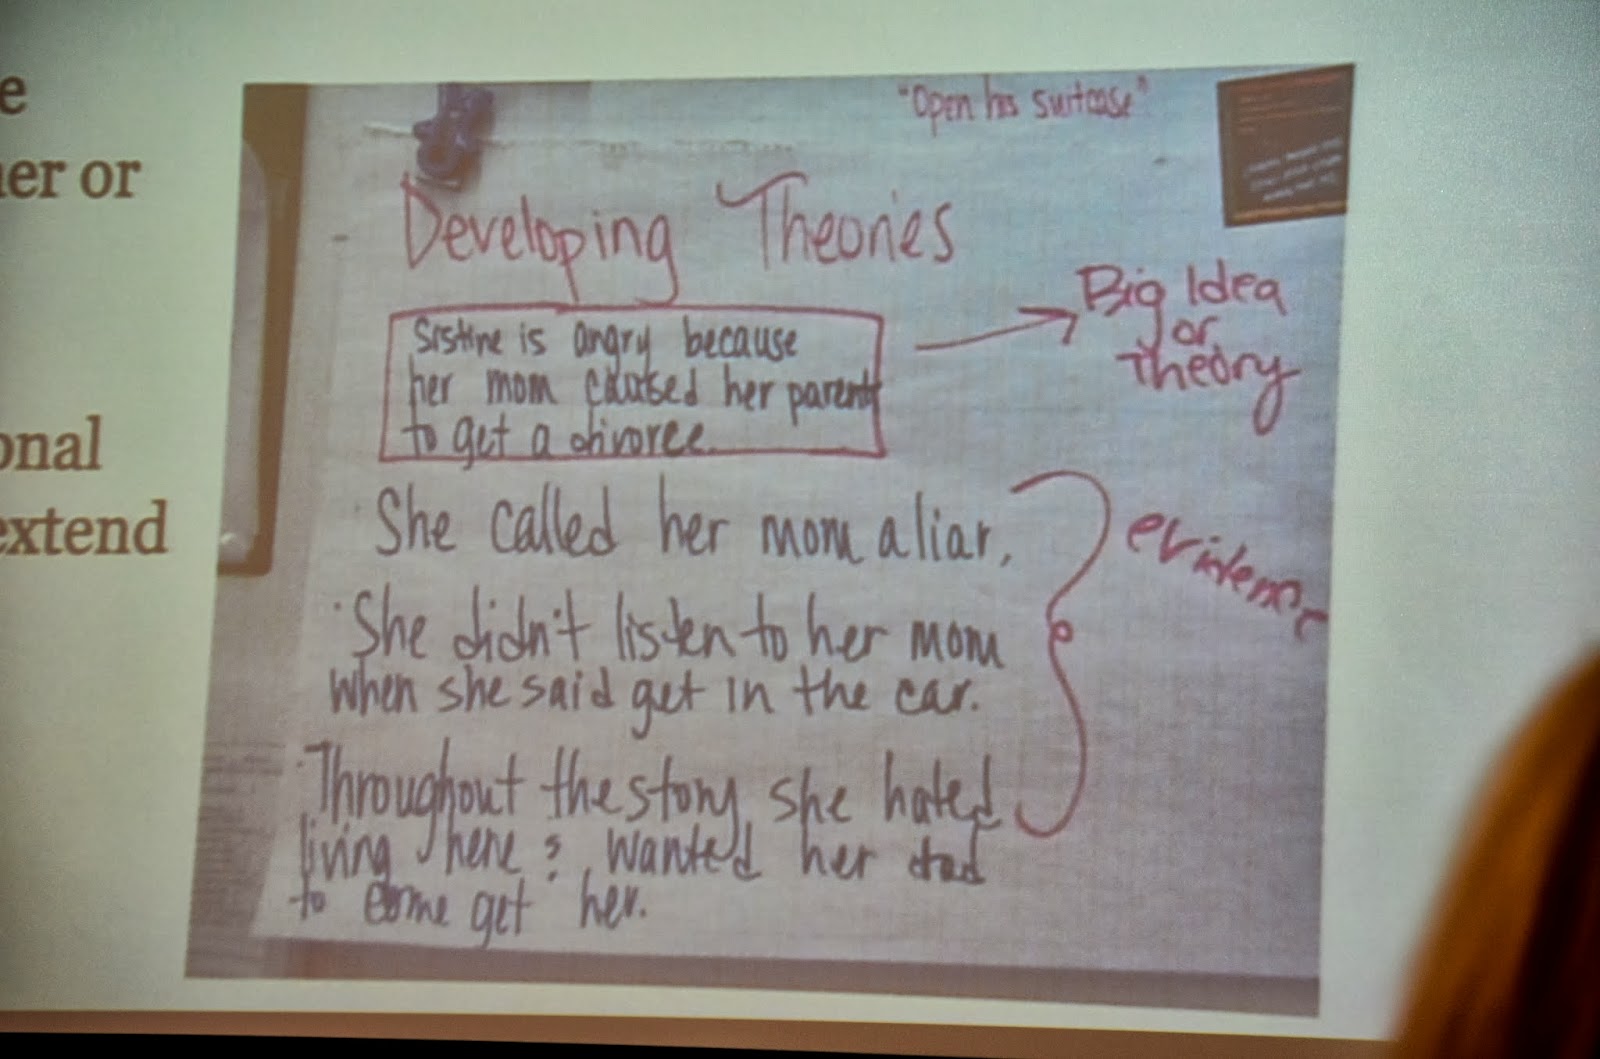 e
er or
onal
extend
"Open his suitcase"
Developing Theories
Sistine is angry because
her mom caused her parents
to get a divorce.
Big Idea
or
Theory
She called her mom a liar.
She didn't listen to her mom
when she said get in the car.
evidence
Throughout the story she hated
living here & wanted her dad
to come get her.